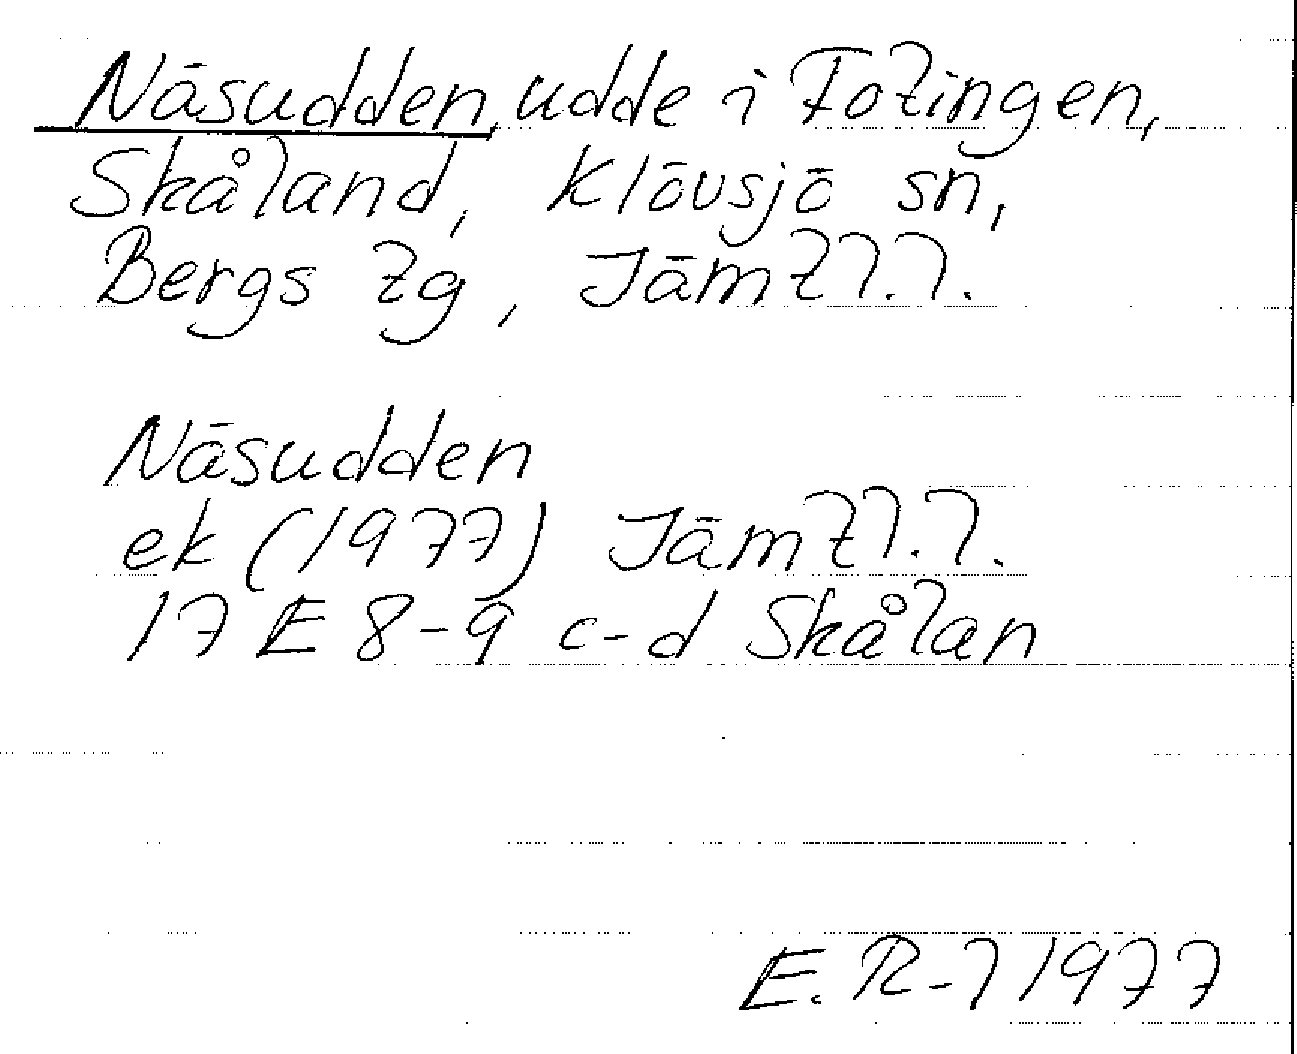 Näsudden, udde i Fotingen,
Skåland, Klövsjö sn,
Bergs tg, Jämtl.l.
Näsudden
ek (1977) Jämtl.l.
17 E 8-9 c-d Skålan
E. R-l 1977